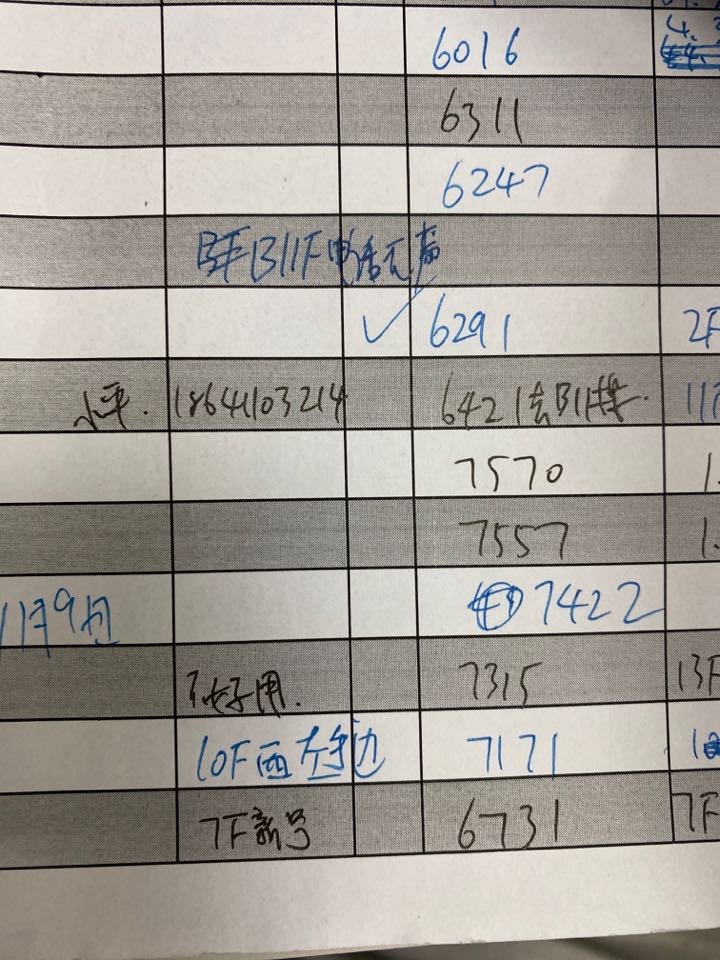 6016
6311
6247
B11F电话无声
6291 2F
小平. 18641103214 6421去B11接. 11F
7570 1.
7557 1.
11月9日 7422
不好用. 7315 13F
10F西左手边 7171
7F新号 6731 7F